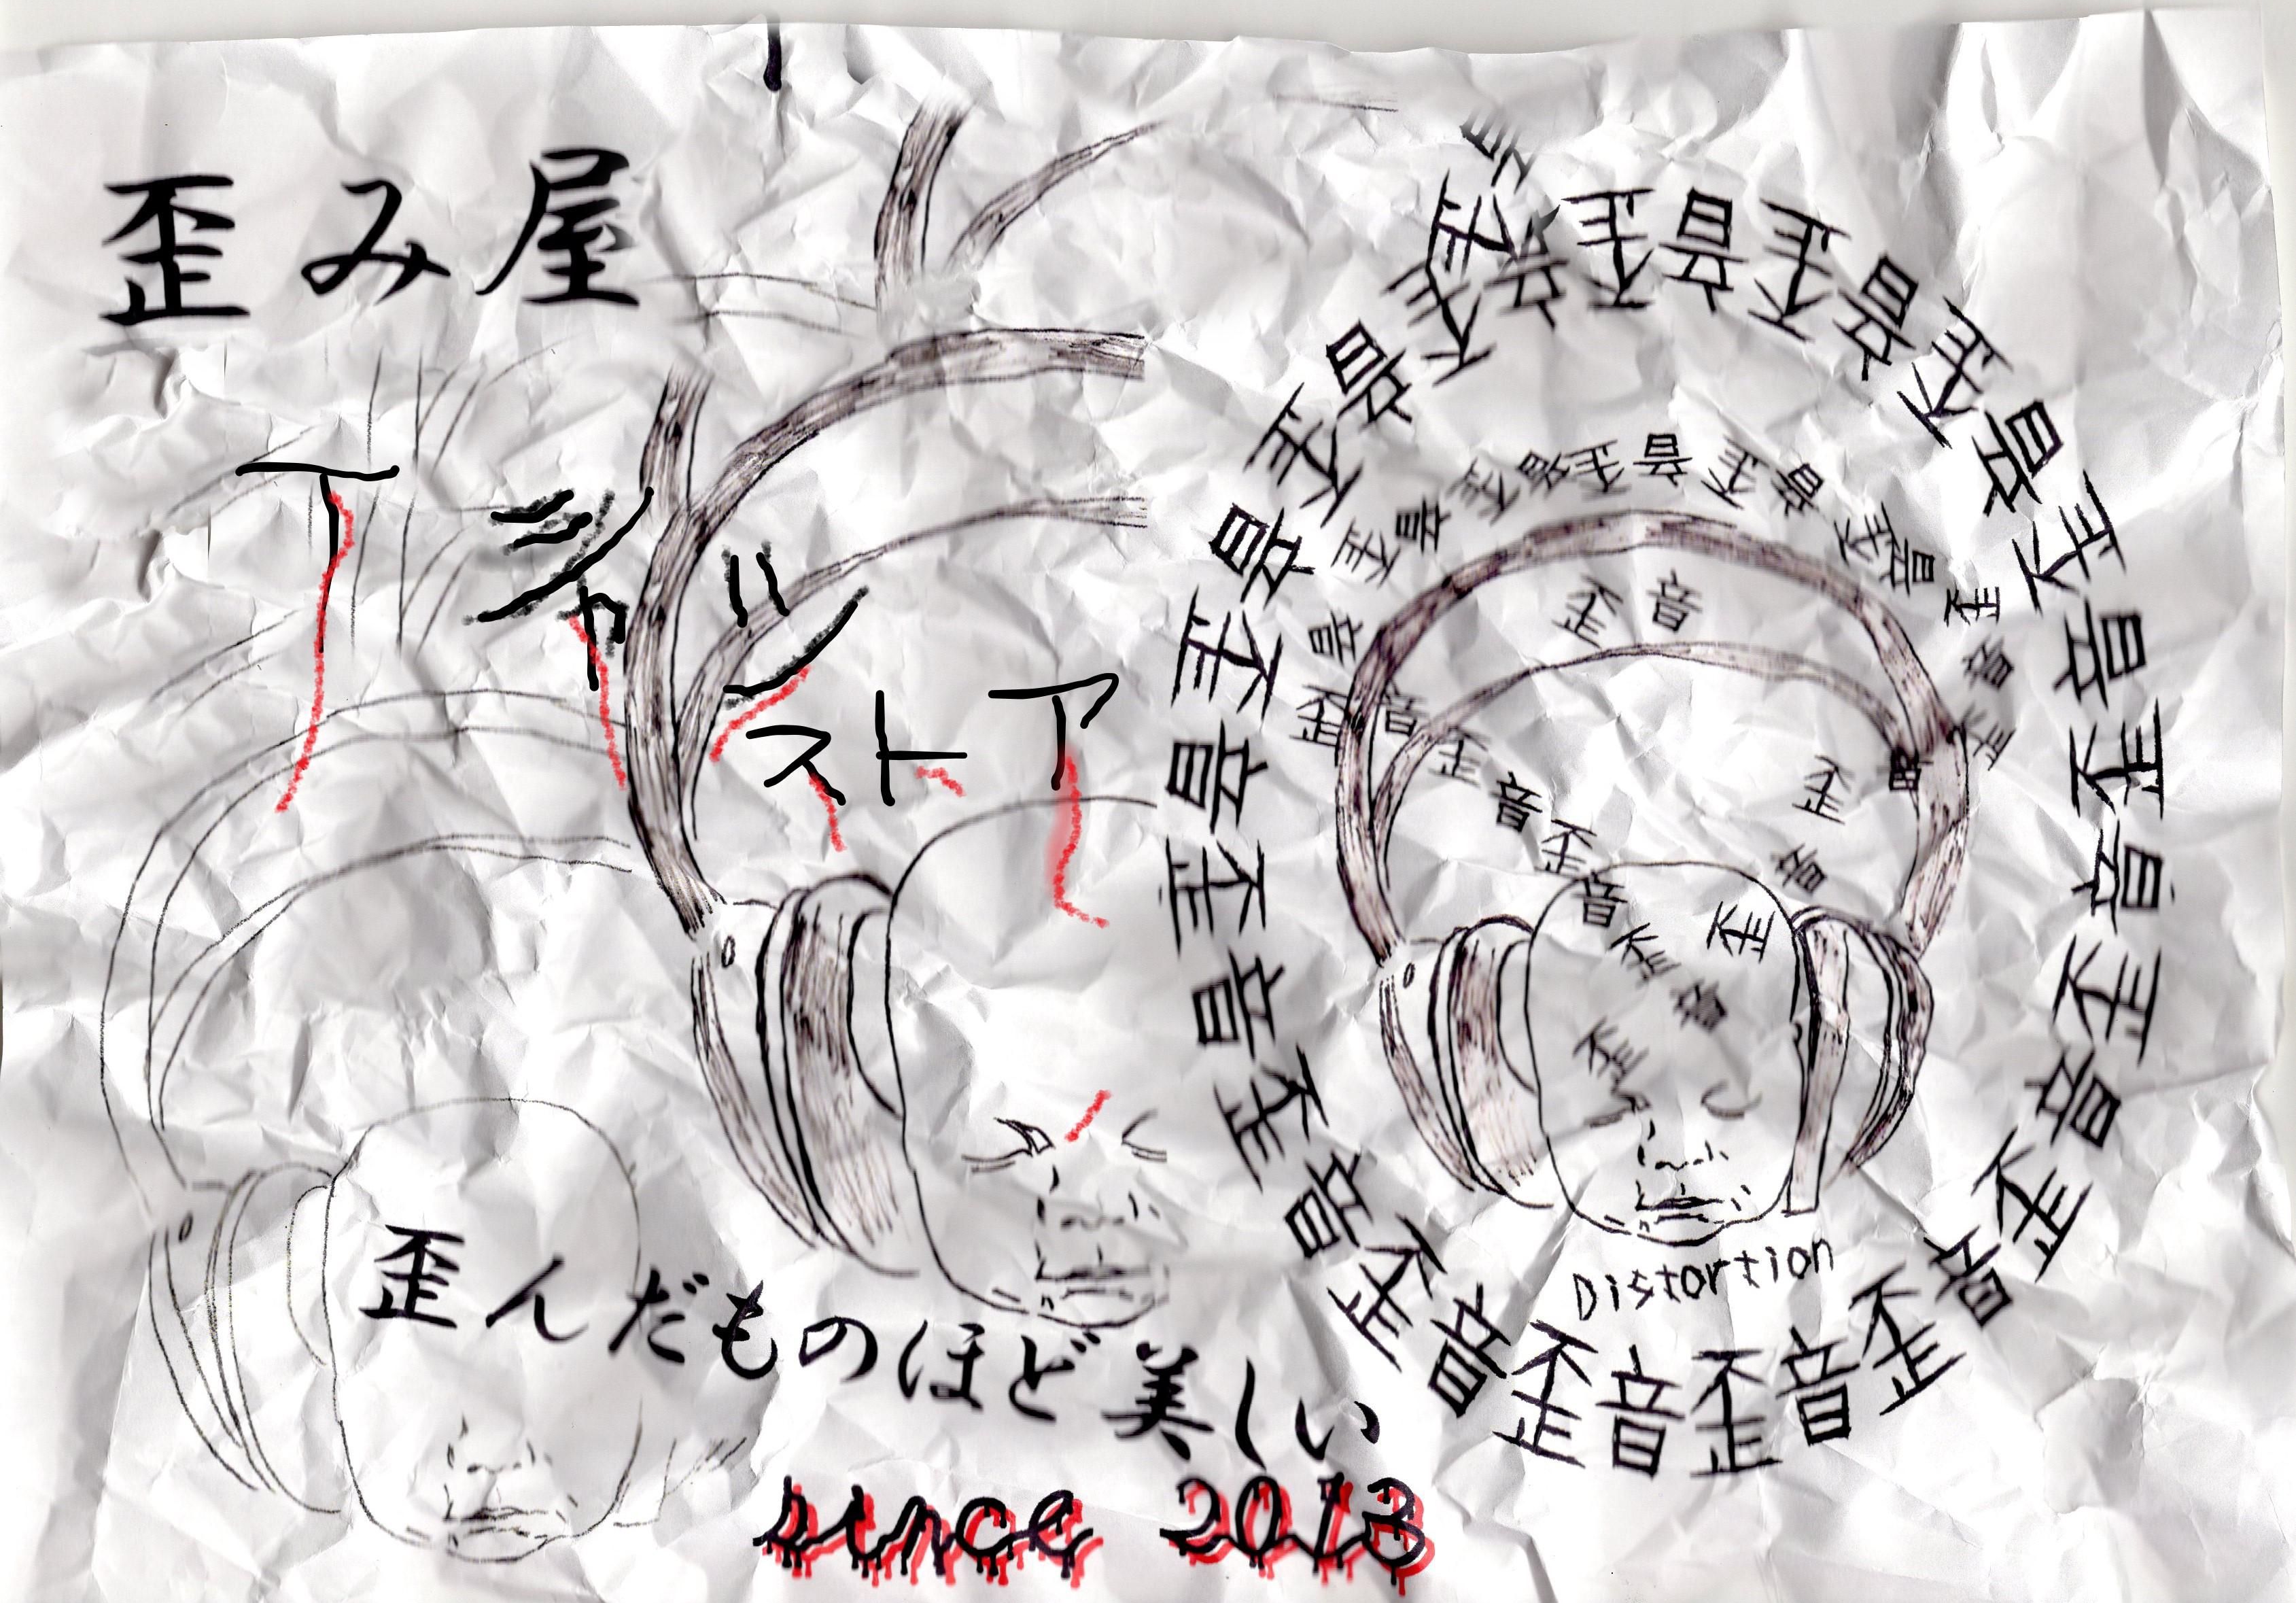 歪み屋
Tシャツ
ストア
歪んだものほど美しい
since 2013
歪音歪音歪音歪音歪音歪音歪音歪音歪音歪音歪音歪音歪音歪音歪音歪音歪音
歪音歪音歪音歪音歪音歪音歪音歪音歪音歪
音歪音歪音歪音歪
歪音
Distortion